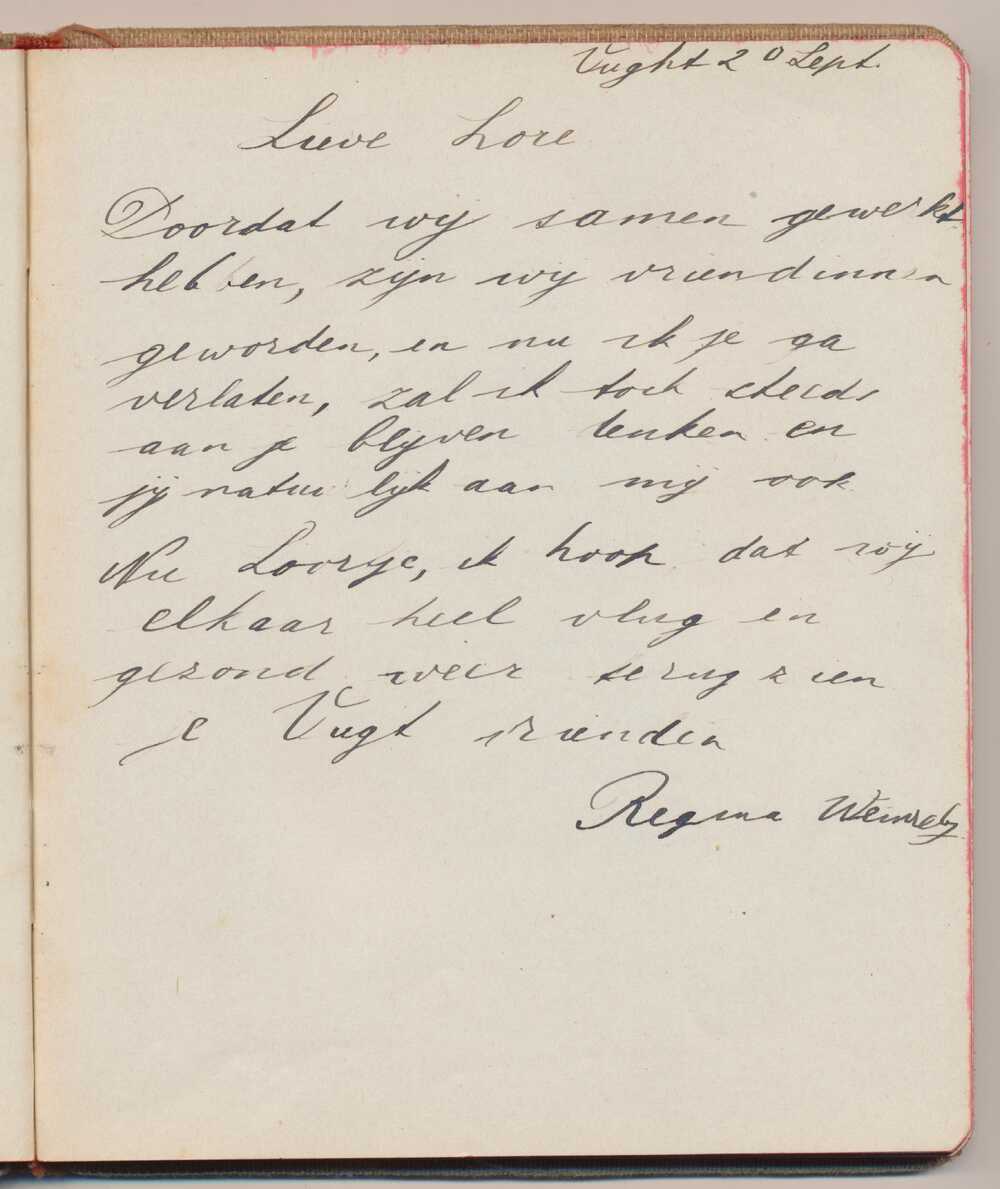 Vught 20 Sept.
Lieve Lore
Doordat wij samen gewerkt
hebben, zijn wij vriendinnen
geworden, en nu ik je ga
verlaten, zal ik toch steeds
aan je blijven denken en
jij natuurlijk aan mij ook
Nu Loortje, ik hoop dat wij
elkaar heel vlug en
gezond weer terug zien
je Vugt vrienden
Regina